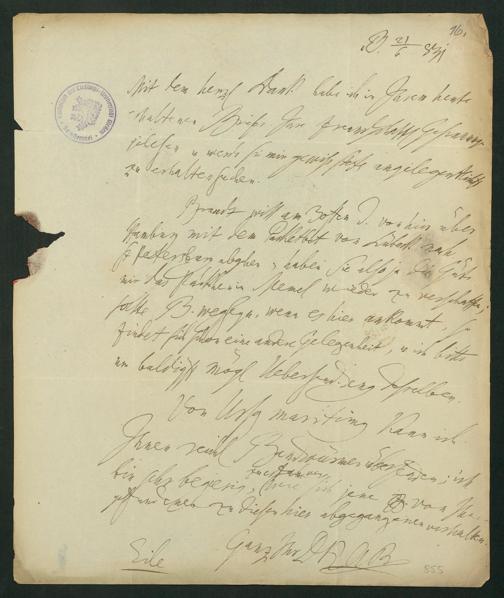 16.
B. 21/6 31
Mit dem herzl. Dank habe ich in Ihrem heute
erhaltenen Briefe Ihre freundschaftl. Gesinnung
gelesen u. werde sie mir gewiss stets angelegentlichst
zu erhalten suchen.
Brandt will am 30sten d. von hier über
Hamburg mit dem Packetbot von Lübeck nach
St Petersburg abgehn, haben Sie also ja die Güte
mir das Kästchen in Memel wieder zu verschaffen;
sollte B. weg seyn, wenn es hier ankommt, so
findet sich schon eine andere Gelegenheit, u. ich bitte
um baldigst mögl. Uebersendung desselben.
Von Urs. maritimus kann ich
Ihnen viel Bandwürmer übersenden; ich
bin sehr begierig, wie sich jene von
gefundenen zu diesen hier abgegangenen verhalten.
Eile
Ganz Ihr
855